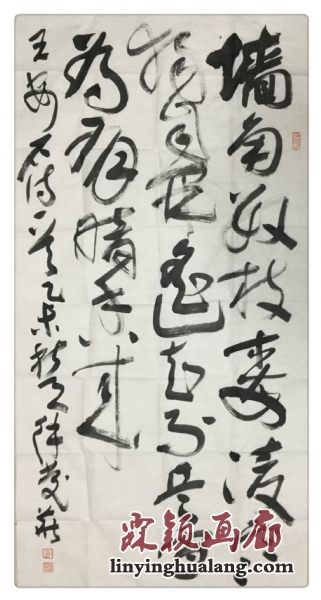 墙角数枝梅凌寒
独自开遥知不是雪
为有暗香来
王安石诗一首乙未秋月
霖颖画廊
linyinghualang.com